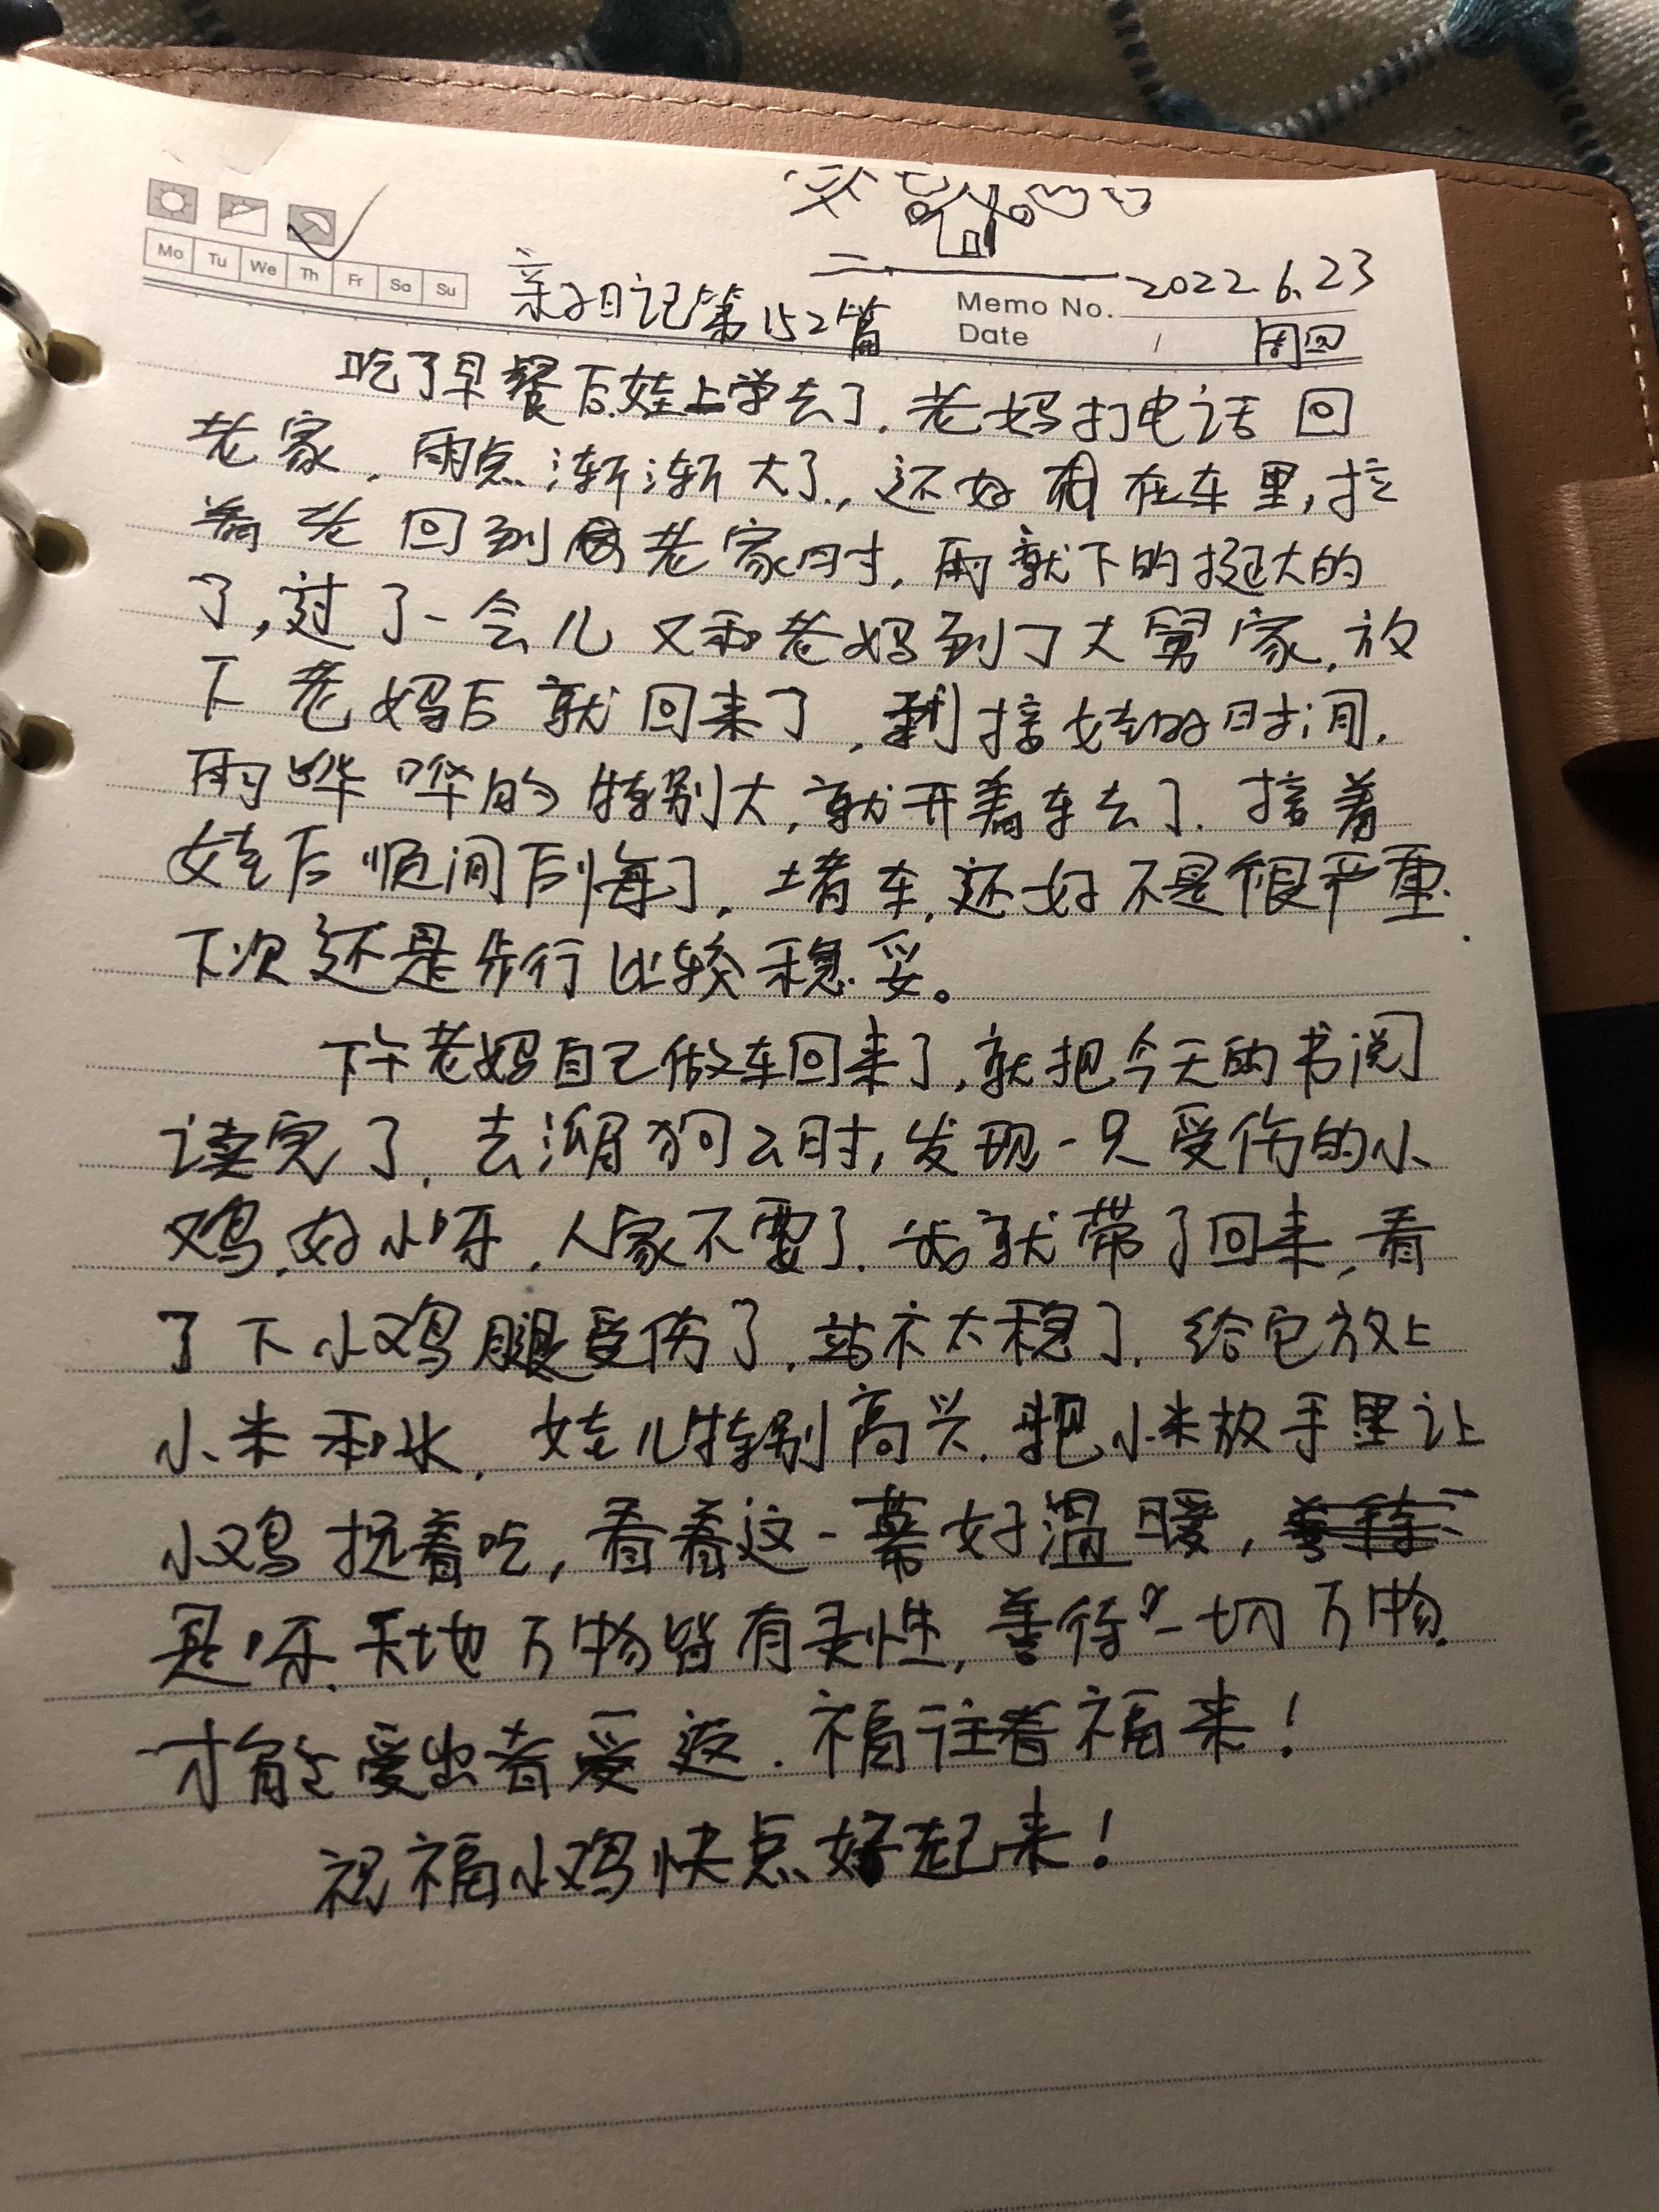 Mo Tu We Th Fr Sa Su
亲子日记第152篇
Memo No. 2022.6.23
Date / 周四
吃了早餐后娃上学去了.老妈打电话回
老家,雨点渐渐大了,还好有在车里,拉
着老回到老家时,雨就下的挺大的
了,过了一会儿又和老妈到了大舅家,放
下老妈后就回来了,到接娃的时间,
雨哗哗的特别大,就开着车去了.接着
娃后顺间后悔了,堵车,还好不是很严重.
下次还是步行比较稳妥。
下午老妈自己做车回来了,就把今天的书阅
读完了,去溜狗的时,发现一只受伤的小
鸡,好小呀,人家不要了.我就带了回来,看
了下小鸡腿受伤了,站不太稳了,给它放上
小米和水,娃儿特别高兴,把小米放手里让
小鸡挠着吃,看着这一幕好温暖,
是呀,天地万物皆有灵性,善待一切万物.
才能爱出者爱返.福往着福来!
祝福小鸡快点好起来!